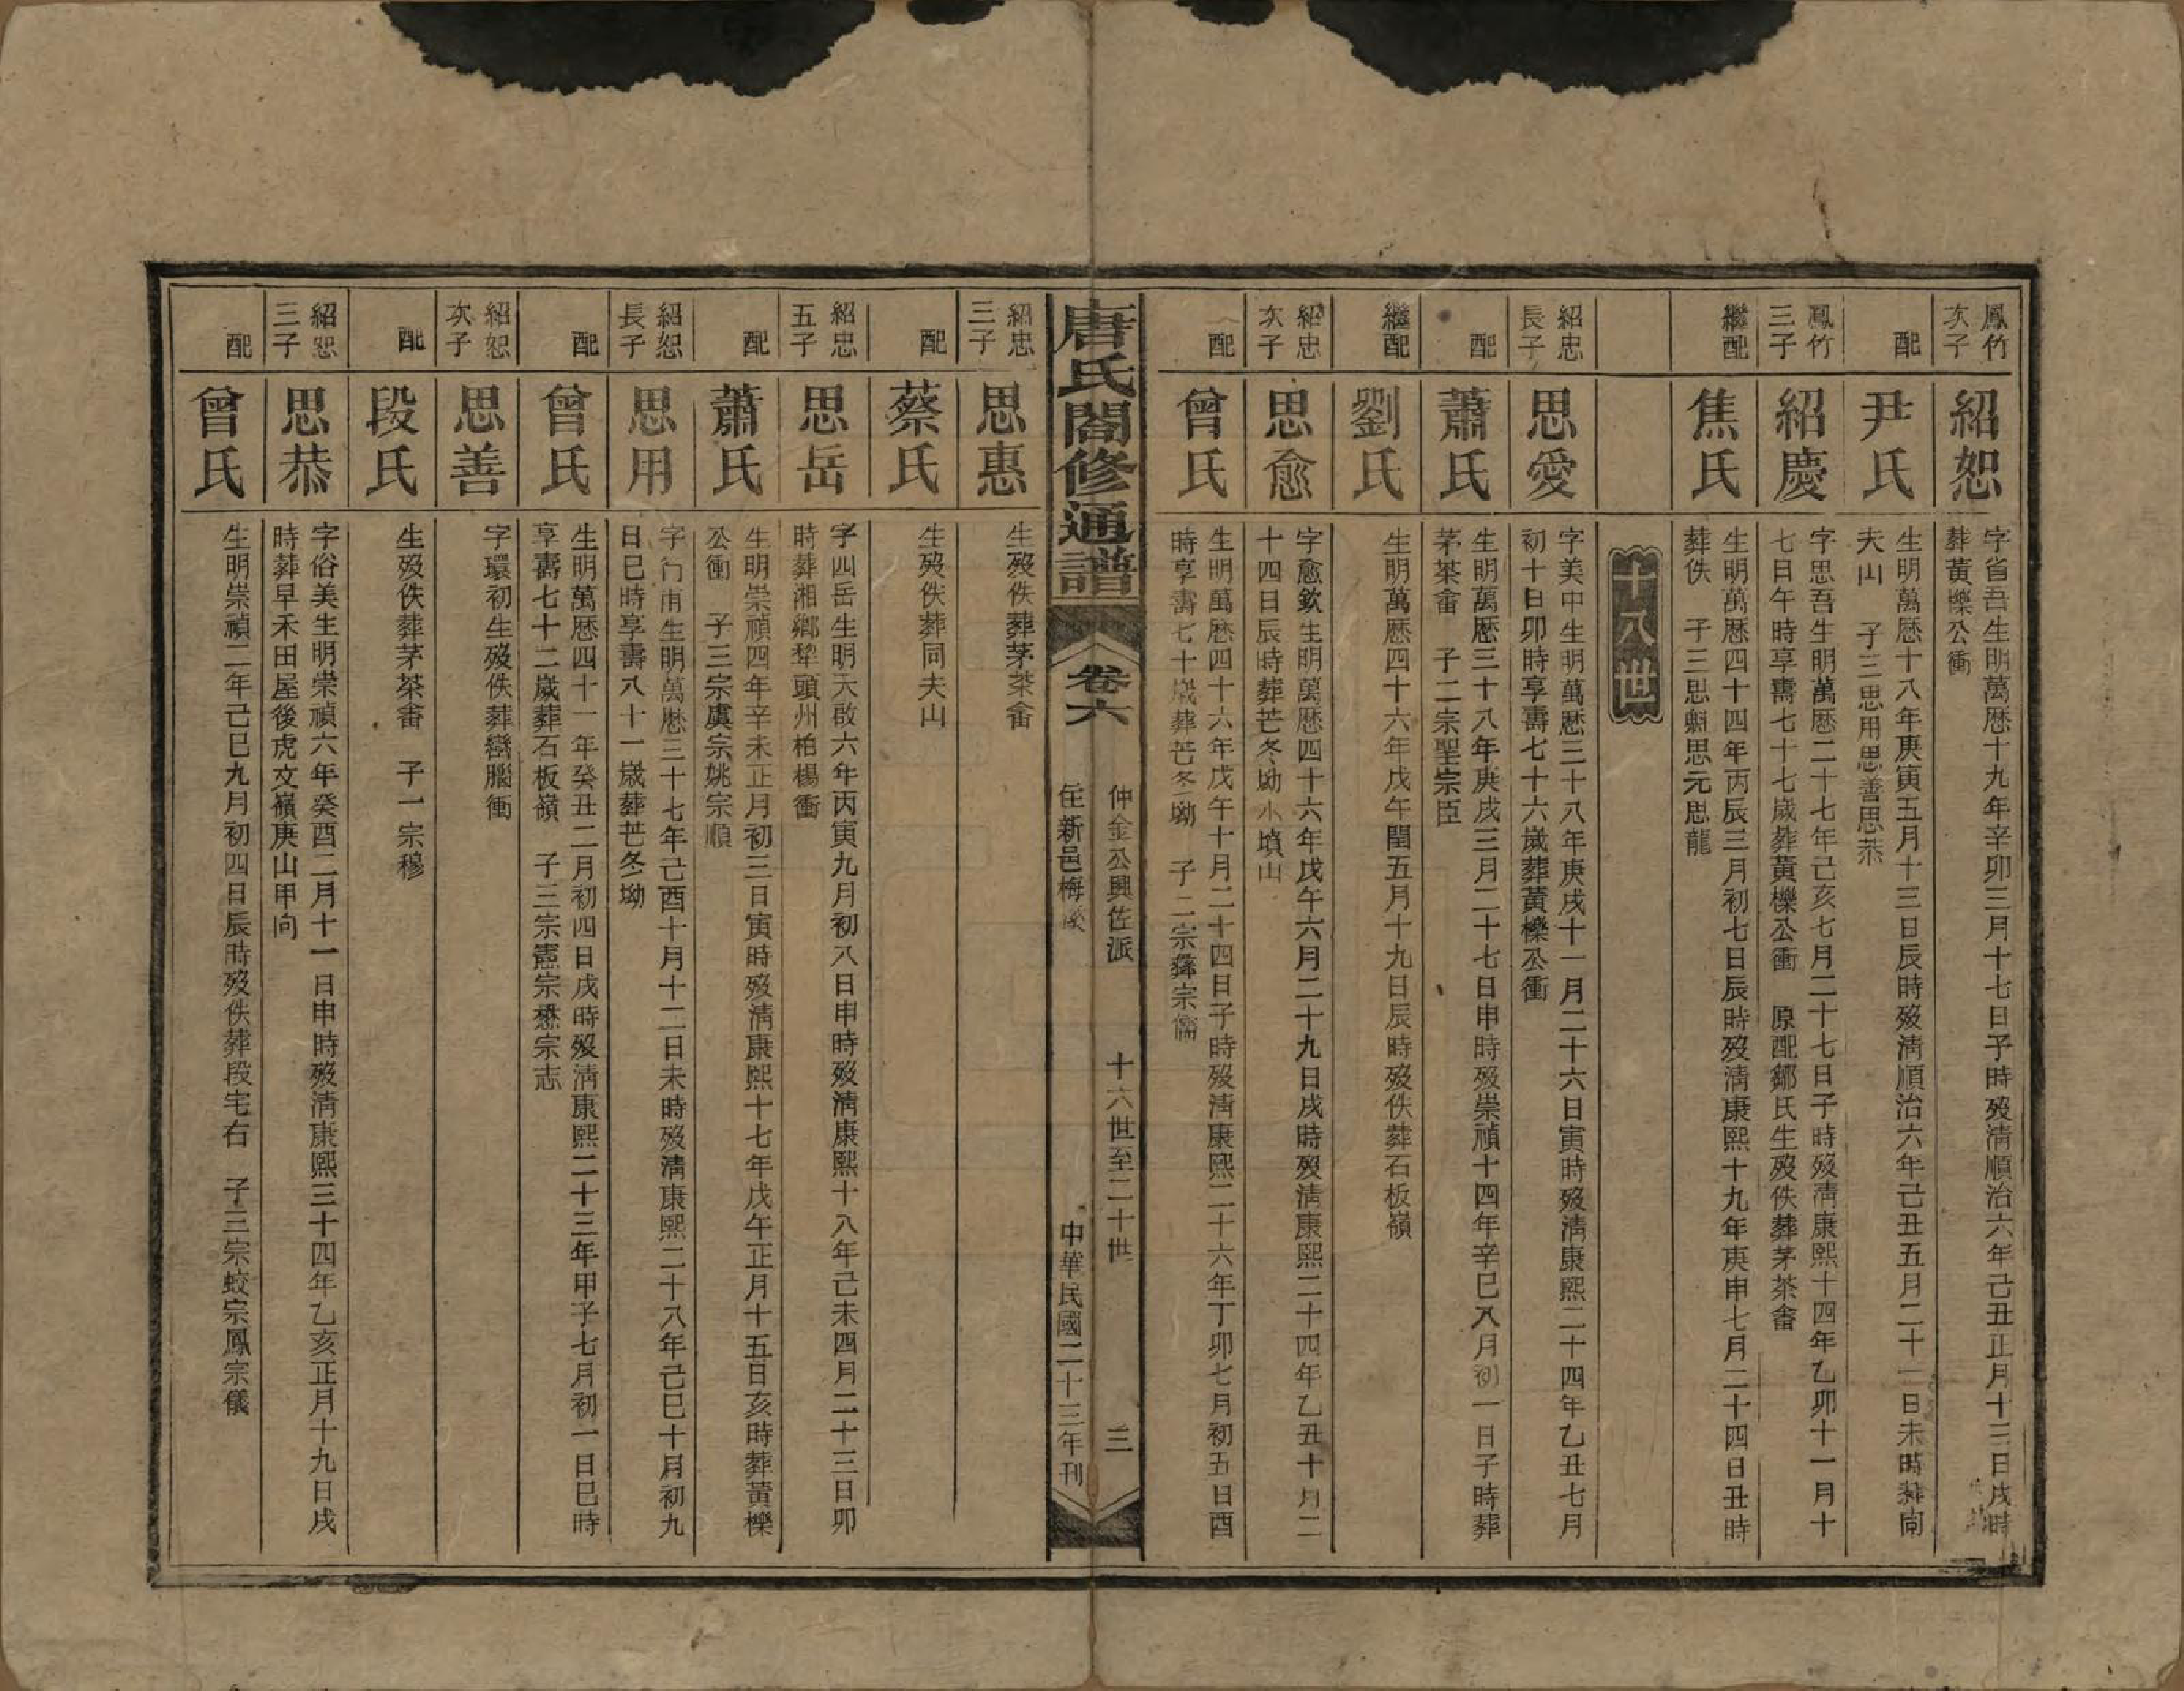 鳳竹
次子
紹恕
字省吾生明萬曆十九年辛卯三月十七日子時歿清順治六年己丑正月十三日戌時
葬黃櫟公衝
配
尹氏
生明萬曆十八年庚寅五月十三日辰時歿清順治六年己丑五月二十一日未時葬同
夫山　子三思用思善思恭
鳳竹
三子
紹慶
字思吾生明萬曆二十七年己亥七月二十七日子時歿清康熙十四年乙卯十一月十
七日午時享壽七十七歲葬黃櫟公衝　原配鄒氏生歿佚葬茅茶畬
繼配
焦氏
生明萬曆四十四年丙辰三月初七日辰時歿清康熙十九年庚申七月二十四日丑時
葬佚　子三思魁思元思龍
十八世
紹忠
長子
思愛
字美中生明萬曆三十八年庚戌十一月二十六日寅時歿清康熙二十四年乙丑七月
初十日卯時享壽七十六歲葬黃櫟公衝
配
蕭氏
生明萬曆三十八年庚戌三月二十七日申時歿崇禎十四年辛巳八月初一日子時葬
茅茶畬　子二宗聖宗臣
繼配
劉氏
生明萬曆四十六年戊午閏五月十九日辰時歿佚葬石板嶺
紹忠
次子
思愈
字愈欽生明萬曆四十六年戊午六月二十九日戌時歿清康熙二十四年乙丑十月二
十四日辰時葬芒冬坳水墳山
配
曾氏
生明萬曆四十六年戊午十月二十四日子時歿清康熙二十六年丁卯七月初五日酉
時享壽七十歲葬芒冬坳　子二宗彝宗儒
唐氏閤修通譜
卷六
仲金公興佐派
住新邑梅溪
十六世至二十世
三
中華民國二十三年刊
紹忠
三子
思惠
生歿佚葬茅茶畬
配
蔡氏
生歿佚葬同夫山
紹忠
五子
思岳
字四岳生明天啟六年丙寅九月初八日申時歿清康熙十八年己未四月二十三日卯
時葬湘鄉犂頭州柏楊衝
配
蕭氏
生明崇禎四年辛未正月初三日寅時歿清康熙十七年戊午正月十五日亥時葬黃櫟
公衝　子三宗虞宗姚宗順
紹恕
長子
思用
字行甫生明萬曆三十七年己酉十月十二日未時歿清康熙二十八年己巳十月初九
日巳時享壽八十一歲葬芒冬坳
配
曾氏
生明萬曆四十一年癸丑二月初四日戌時歿清康熙二十三年甲子七月初一日巳時
享壽七十二歲葬石板嶺　子三宗憲宗懋宗志
紹恕
次子
思善
字環初生歿佚葬巒腦衝
配
段氏
生歿佚葬茅茶畬　子一宗穆
紹恕
三子
思恭
字俗美生明崇禎六年癸酉二月十一日申時歿清康熙三十四年乙亥正月十九日戌
時葬早禾田屋後虎文嶺庚山甲向
配
曾氏
生明崇禎二年己巳九月初四日辰時歿佚葬段宅右　子三宗蛟宗鳳宗儀